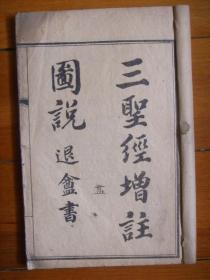 三聖經增註
圖說
退盦書